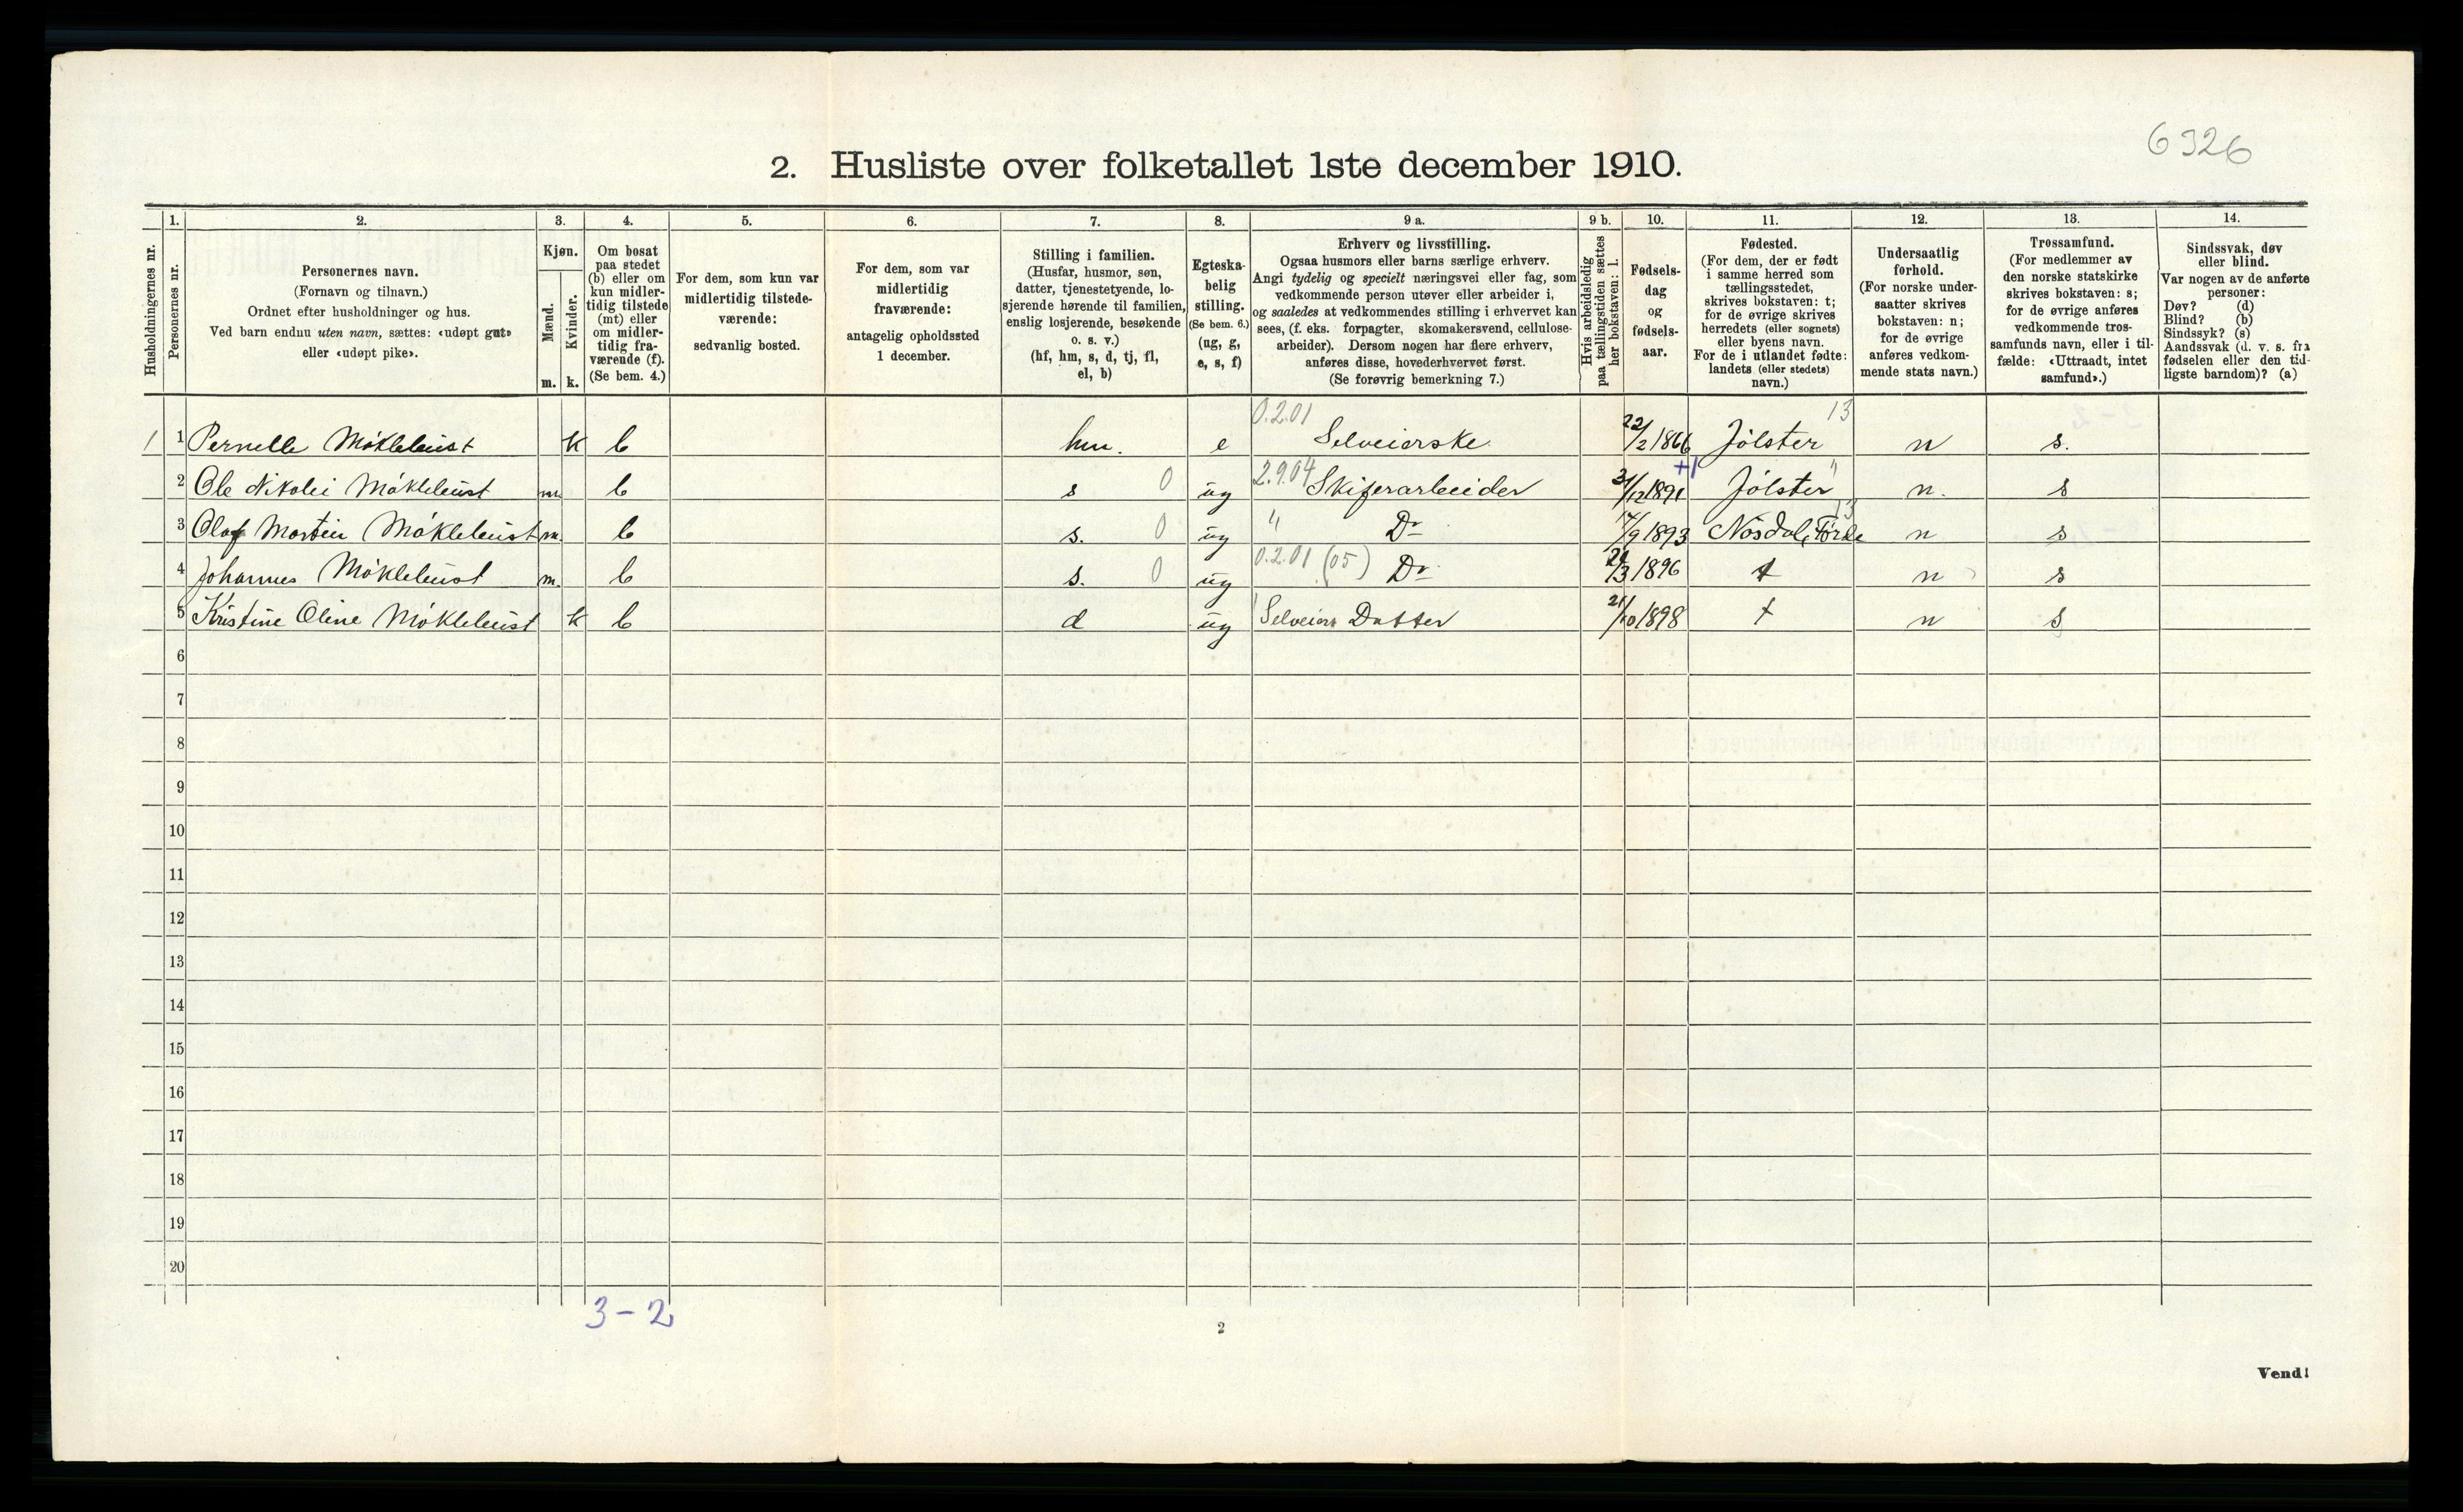 6326
2. Husliste over folketallet 1ste december 1910.
Husholdningernes nr.
1.
Personernes nr.
2.
Personernes navn.
(Fornavn og tilnavn.)
Ordnet efter husholdninger og hus.
Ved barn endnu uten navn, sættes: «udøpt gut»
eller «udøpt pike».
3.
Kjøn.
Mænd.
Kvinder.
m. k.
4.
Om bosat
paa stedet
(b) eller om
kun midler-
tidig tilstede
(mt) eller
om midler-
tidig fra-
værende (f).
(Se bem. 4.)
5.
For dem, som kun var
midlertidig tilstede-
værende:
sedvanlig bosted.
6.
For dem, som var
midlertidig
fraværende:
antagelig opholdssted
1 december.
7.
Stilling i familien.
(Husfar, husmor, søn,
datter, tjenestetyende, lo-
sjerende hørende til familien,
enslig losjerende, besøkende
o. s. v.)
(hf, hm, s, d, tj, fl,
el, b)
8.
Egteska-
belig
stilling.
(Se bem. 6.)
(ug, g,
e, s, f)
9 a.
Erhverv og livsstilling.
Ogsaa husmors eller barns særlige erhverv.
Angi tydelig og specielt næringsvei eller fag, som
vedkommende person utøver eller arbeider i,
og saaledes at vedkommendes stilling i erhvervet kan
sees, (f. eks. forpagter, skomakersvend, cellulose-
arbeider). Dersom nogen har flere erhverv,
anføres disse, hovederhvervet først.
(Se forøvrig bemerkning 7.)
9 b.
Hvis arbeidsledig
paa tællingstiden sættes
her bokstaven: l.
10.
Fødsels-
dag
og
fødsels-
aar.
11.
Fødested.
(For dem, der er født
i samme herred som
tællingsstedet,
skrives bokstaven: t;
for de øvrige skrives
herredets (eller sognets)
eller byens navn.
For de i utlandet fødte:
landets (eller stedets)
navn.)
12.
Undersaatlig
forhold.
(For norske under-
saatter skrives
bokstaven: n;
for de øvrige
anføres vedkom-
mende stats navn.)
13.
Trossamfund.
(For medlemmer av
den norske statskirke
skrives bokstaven: s;
for de øvrige anføres
vedkommende tros-
samfunds navn, eller i til-
fælde: «Uttraadt, intet
samfund».)
14.
Sindssvak, døv
eller blind.
Var nogen av de anførte
personer:
Døv? (d)
Blind? (b)
Sindssyk? (s)
Aandssvak (d. v. s. fra
fødselen eller den tid-
ligste barndom)? (a)
0.2.01 13
1 1 Pernelle Möklebust k b hm. e Selveierske 22/2 1866 Jölster n s.
2.9.04 +1 "
2 Ole Nikolei Möklebust m. b s 0 ug Skiferarbeider 31/12 1891 Jölster n. s
" 13
3 Olaf Martin Möklebust m. b s. 0 ug Do 17/9 1893 Nösdal, Förde n s
0.2.01 (05)
4 Johannes Möklebust m. b s. 0 ug Do 21/3 1896 t n s
5 Kristine Oline Möklebust k b d ug Selveiers Datter 21/10 1898 t n s
6
7
8
9
10
11
12
13
14
15
16
17
18
19
20
3-2
2
Vend!